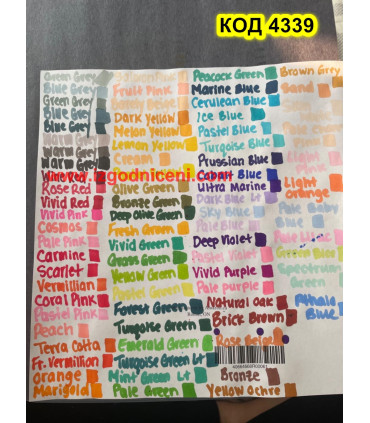 КОД 4339
Green Grey
Blue Grey
Green Grey
Blue Grey
Blue Grey
Warm Grey
Warm Grey
Warm Grey
Rose Red
Vivid Red
Vivid Pink
Cosmos
Pale Pink
Carmine
Scarlet
Vermillian
Coral Pink
Pastel Pink
Peach
Terra Cotta
Fr. Vermillion
Orange
Marigold
Salmon Pink
Fruit Pink
Barely Beige
Dark Yellow
Melon Yellow
Lemon Yellow
Cream
www.izgodniceni.com
Olive Green
Bronze Green
Deep Olive Green
Fresh Green
Vivid Green
Grass Green
Yellow Green
Pastel Green
Forest Green
Turquoise Green
Emerald Green
Turquoise Green Lt
Mint Green Lt
Pale Green
Peacock Green
Marine Blue
Cerulean Blue
Ice Blue
Pastel Blue
Turquoise Blue
Pale Blue
Prussian Blue
Cobalt Blue
Ultra Marine
Dark Blue Lt
Sky Blue
Pale Blue
Deep Violet
Pastel Violet
Vivid Purple
Pale purple
Natural oak
Brick Brown
Rose Beige
Bronze
Yellow Ochre
Brown Grey
Sand
Light Pink
Light Orange
Pale Baby Blue
Pale Lilac
Green Blue
Spectrum Green
Phthalo Blue